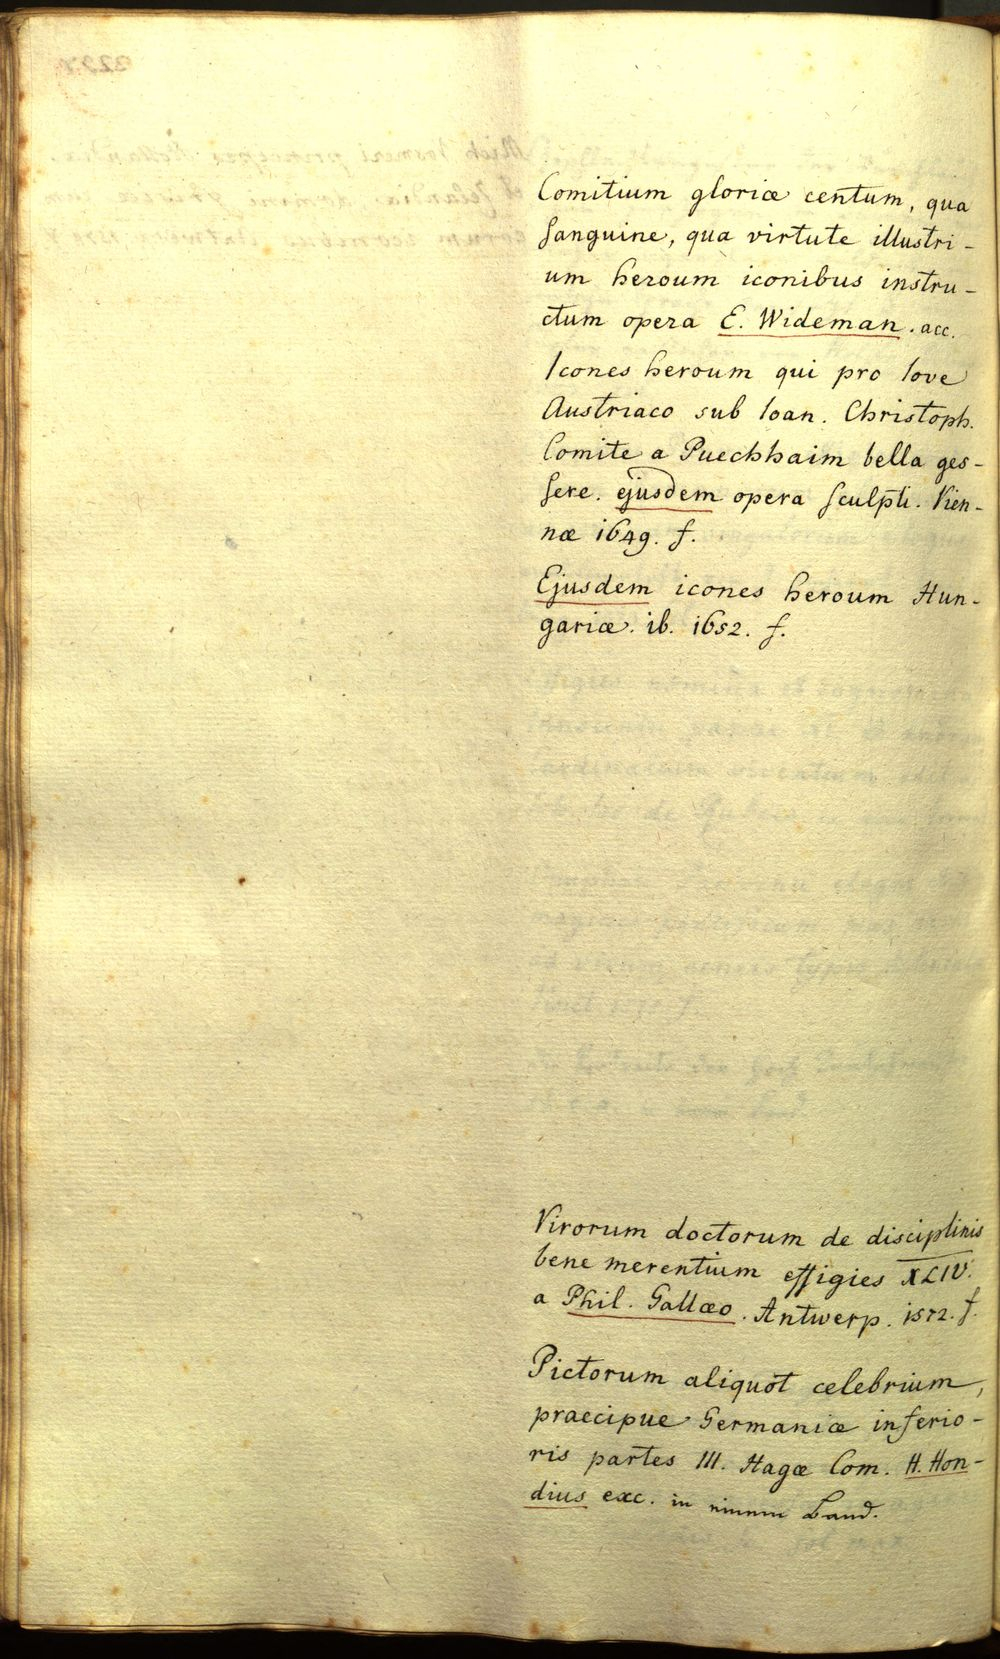 Comitium gloriæ centum, qua
sanguine, qua virtute illustri-
um heroum iconibus instru-
ctum opera E. Wideman. acc.
Icones heroum qui pro Iove
Austriaco sub Ioan. Christoph.
Comite a Puechhaim bella ges-
sere. ejusdem opera sculpti. Vien-
næ 1649. f.
Ejusdem icones heroum Hun-
gariæ. ib. 1652. f.
Virorum doctorum de disciplinis
bene merentium effigies XLIV.
a Phil. Gallæo. Antwerp. 1572. f.
Pictorum aliquot celebrium,
praecipue Germaniæ inferio-
ris partes III. Hagæ Com. H. Hon-
dius exc. in einem Band.